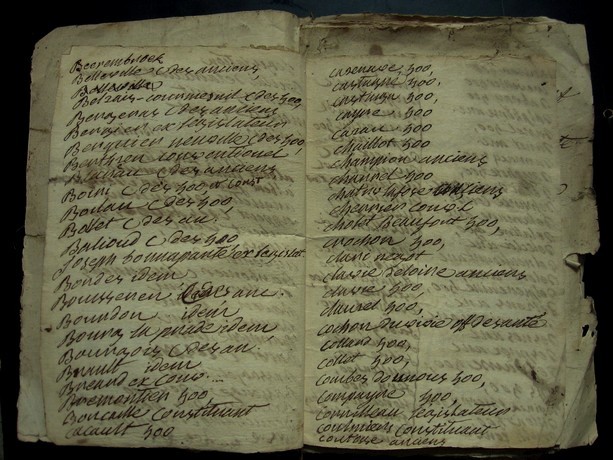 Beerembroek
Belleville C des anciens,
Belleville
Belzais courmenil C des 500,
Bengeras C des anciens
Benguier ex législateur
Benquien neuville C des 500,
Bentzen conventionel
Blanau C des anciens
Boini C des 500, et const
Boilau C des 500,
Bollet C des an.
Balioud C des 500
Joseph bonnaparte ex legislat.
Bondes idem
Bousseneu C des anc.
Boundon idem
Bouny la prade idem,
Bourgois C des an.
Brault idem
Breand ex Conv...
Bremontien 500,
Boncaste Constituant
Cacault 500
casenave, 500,
castaigne 500,
castuign 500,
cayre 500,
cazan 500,
chaillot 500
champion anciens
channel 500
chatry lafosse anciens
cherrier cons. C
cholet Beaufort 500,
crochon 500,
claire
clavie deloise anciens
clavie 500,
clauzel 500,
cochon duvivie off de santé
colland 500,
collot 500,
combes dounous 500,
compayne 500,
cornilleau Legislateur
Constituant
couteuse anciens